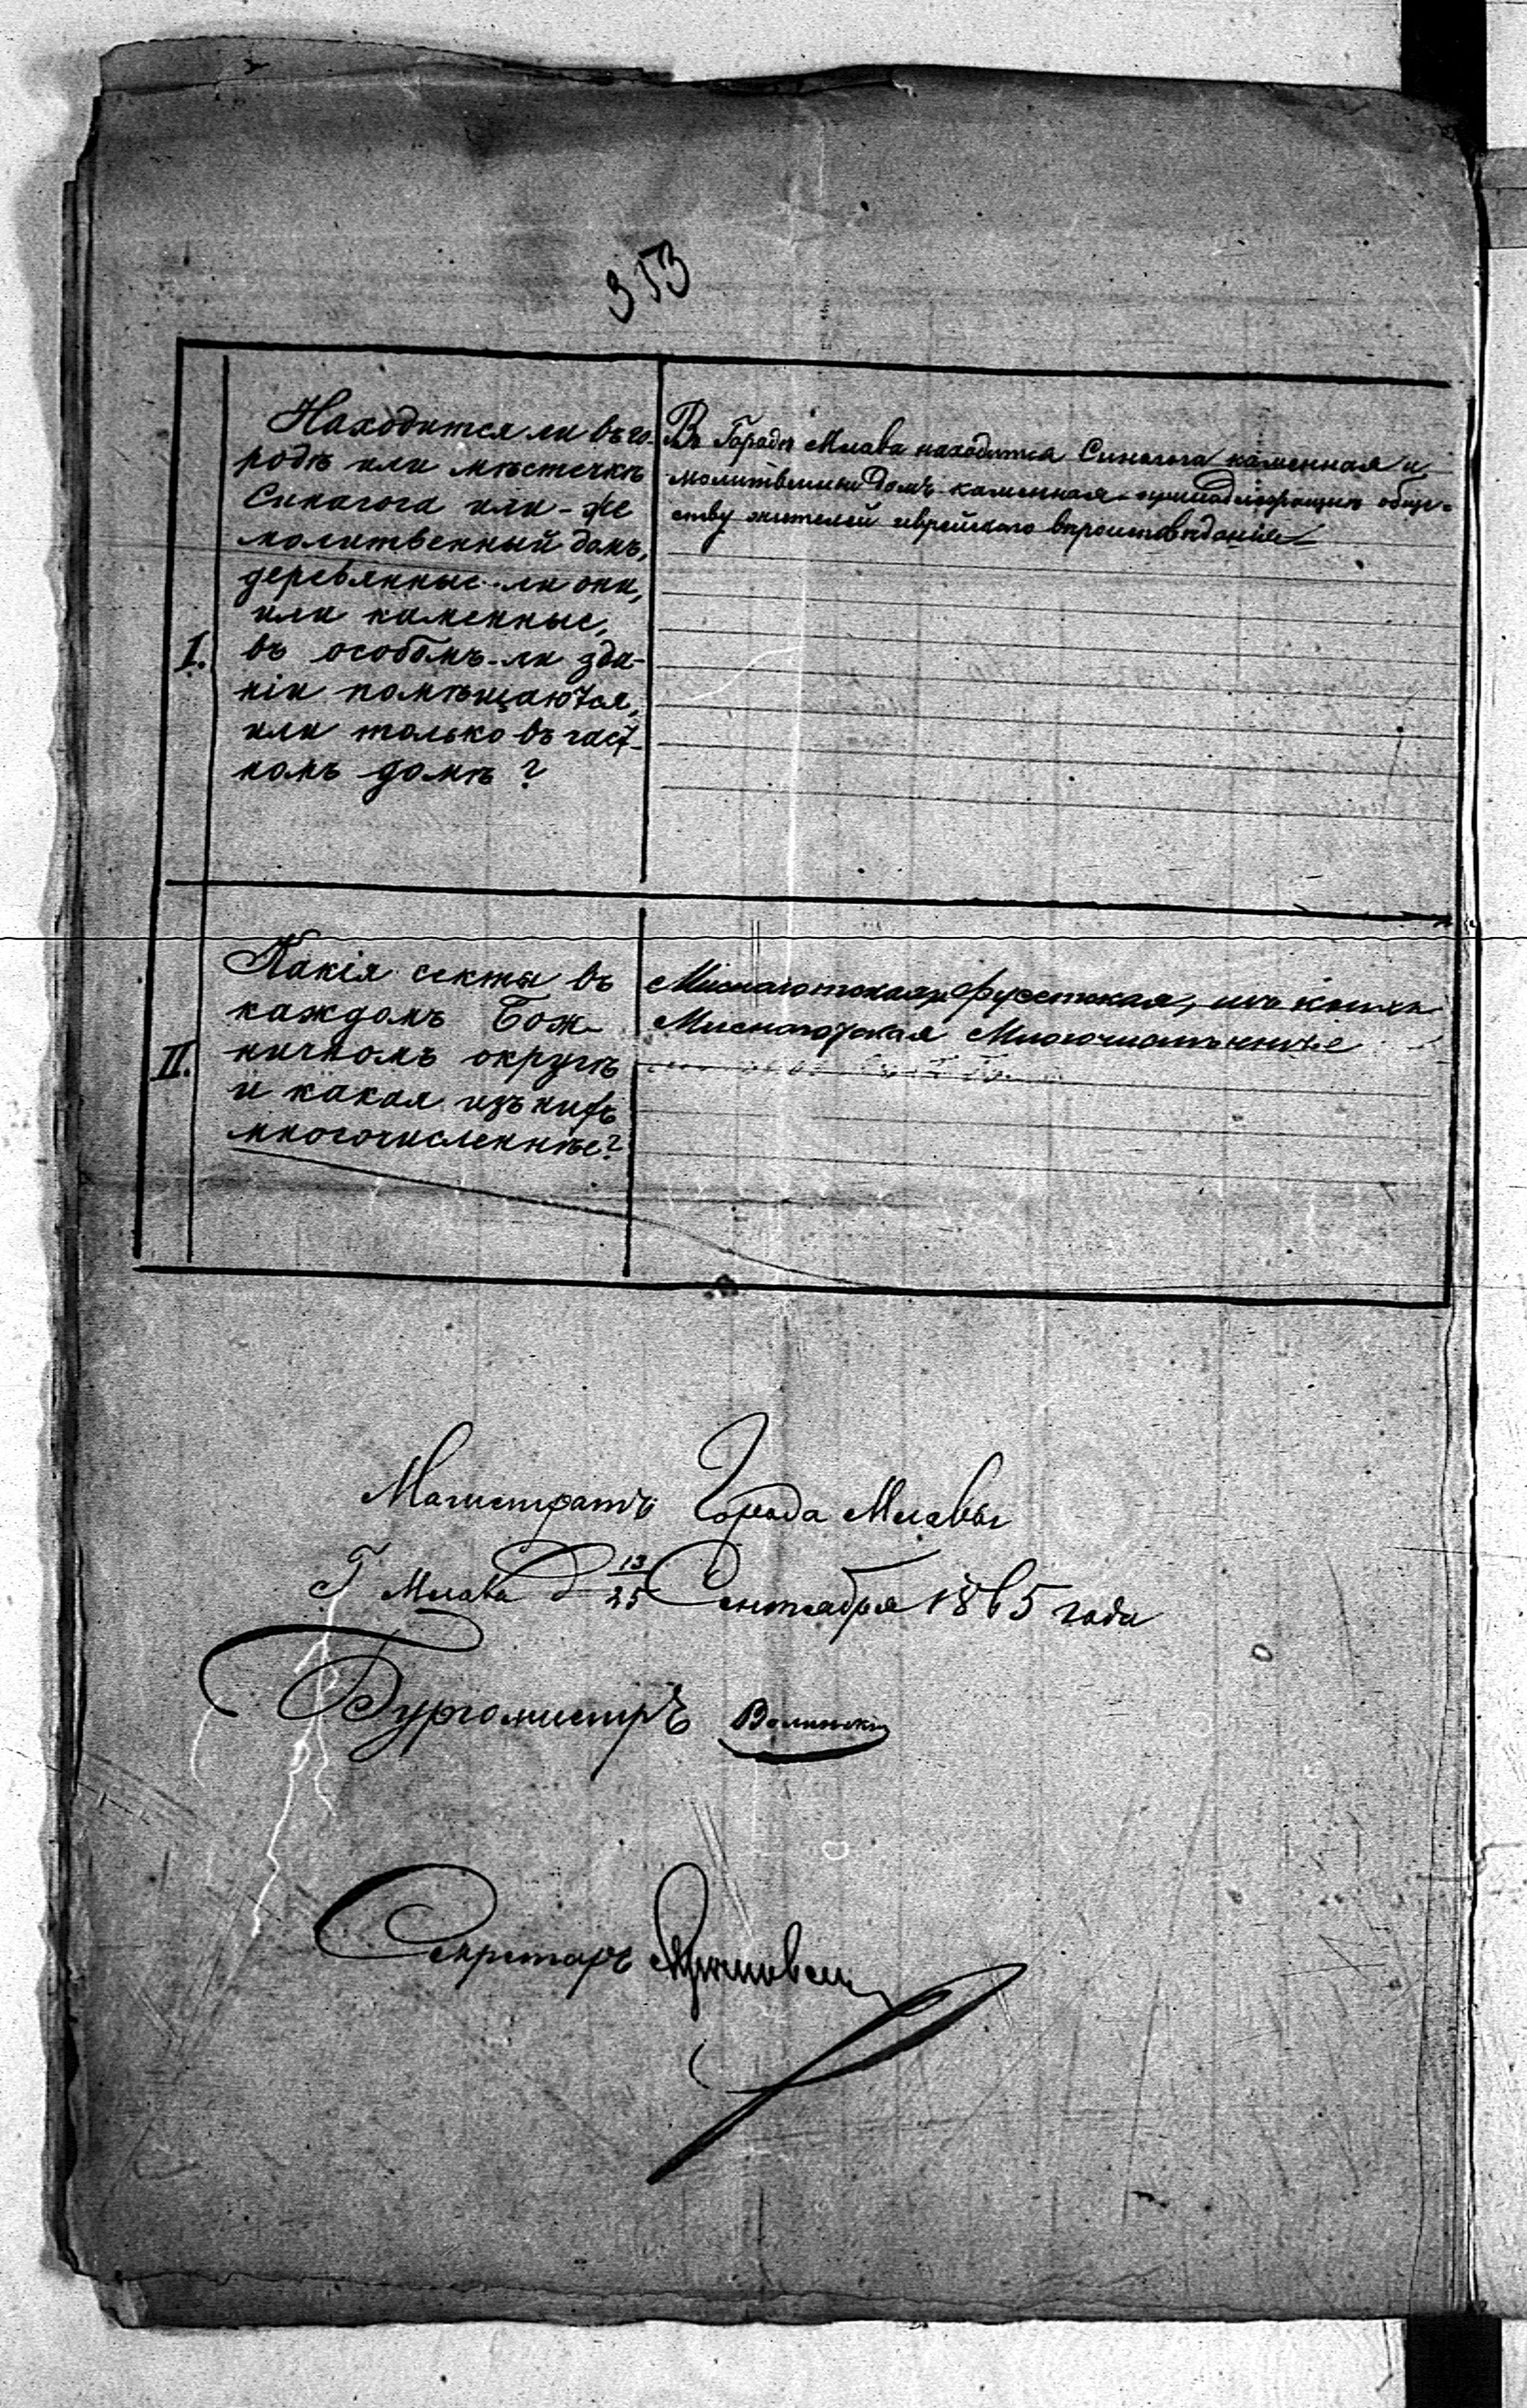 353
I.
Находится ли въ го-
родѣ или мѣстечкѣ
Синагога или-же
молитвенный домъ,
деревянные-ли они,
или каменные,
въ особомъ-ли зда-
ніи помѣщаются,
или только въ част-
номъ домѣ?
Въ Городѣ Млава находится Синагога каменная и
молитвенны домъ каменная принадлежащих обще-
ству жителей еврейскаго вѣроисповѣданія
II.
Какія секты въ
каждомъ Бож-
ничномъ округѣ
и какая изъ нихъ
многочисленнѣе?
Миснаготская
Миснаготская Многочисленнѣе
Магистратъ Города Млавы
Г Млава д 13/25 Сентября 1865 года
Бургомистръ
Секретаръ